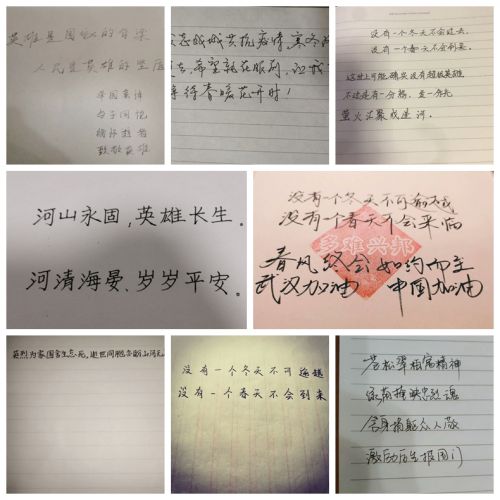 英雄是国家的脊梁
人民是英雄的坚盾
举国哀悼
勿忘英雄
致敬英雄
众志成城共抗疫情,寒冬
去,希望就在眼前,让我
等待春暖花开时!
没有一个冬天不会过去,
没有一个春天不会到来。
这世上可能确实没有超级英雄
不过是有一分热,发一分光
萤火汇聚成星河。
河山永固,英雄长生。
河清海晏、岁岁平安。
没有一个冬天不可逾越
没有一个春天不会来临
多难兴邦
春风终会如约而至
武汉加油 中国加油
英烈为家国舍生忘死,
没有一个冬天不可逾越
没有一个春天不会到来
苍松翠柏 精神
忠魂
舍身捐躯众人敬
激励后生报国门